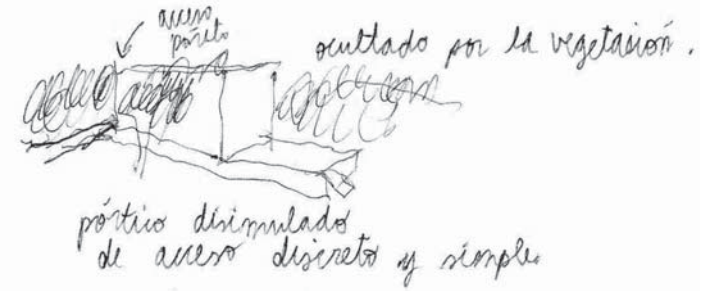 acceso
ocultado por la vegetasión.
pórtico disimulado
de acceso discreto y simple.